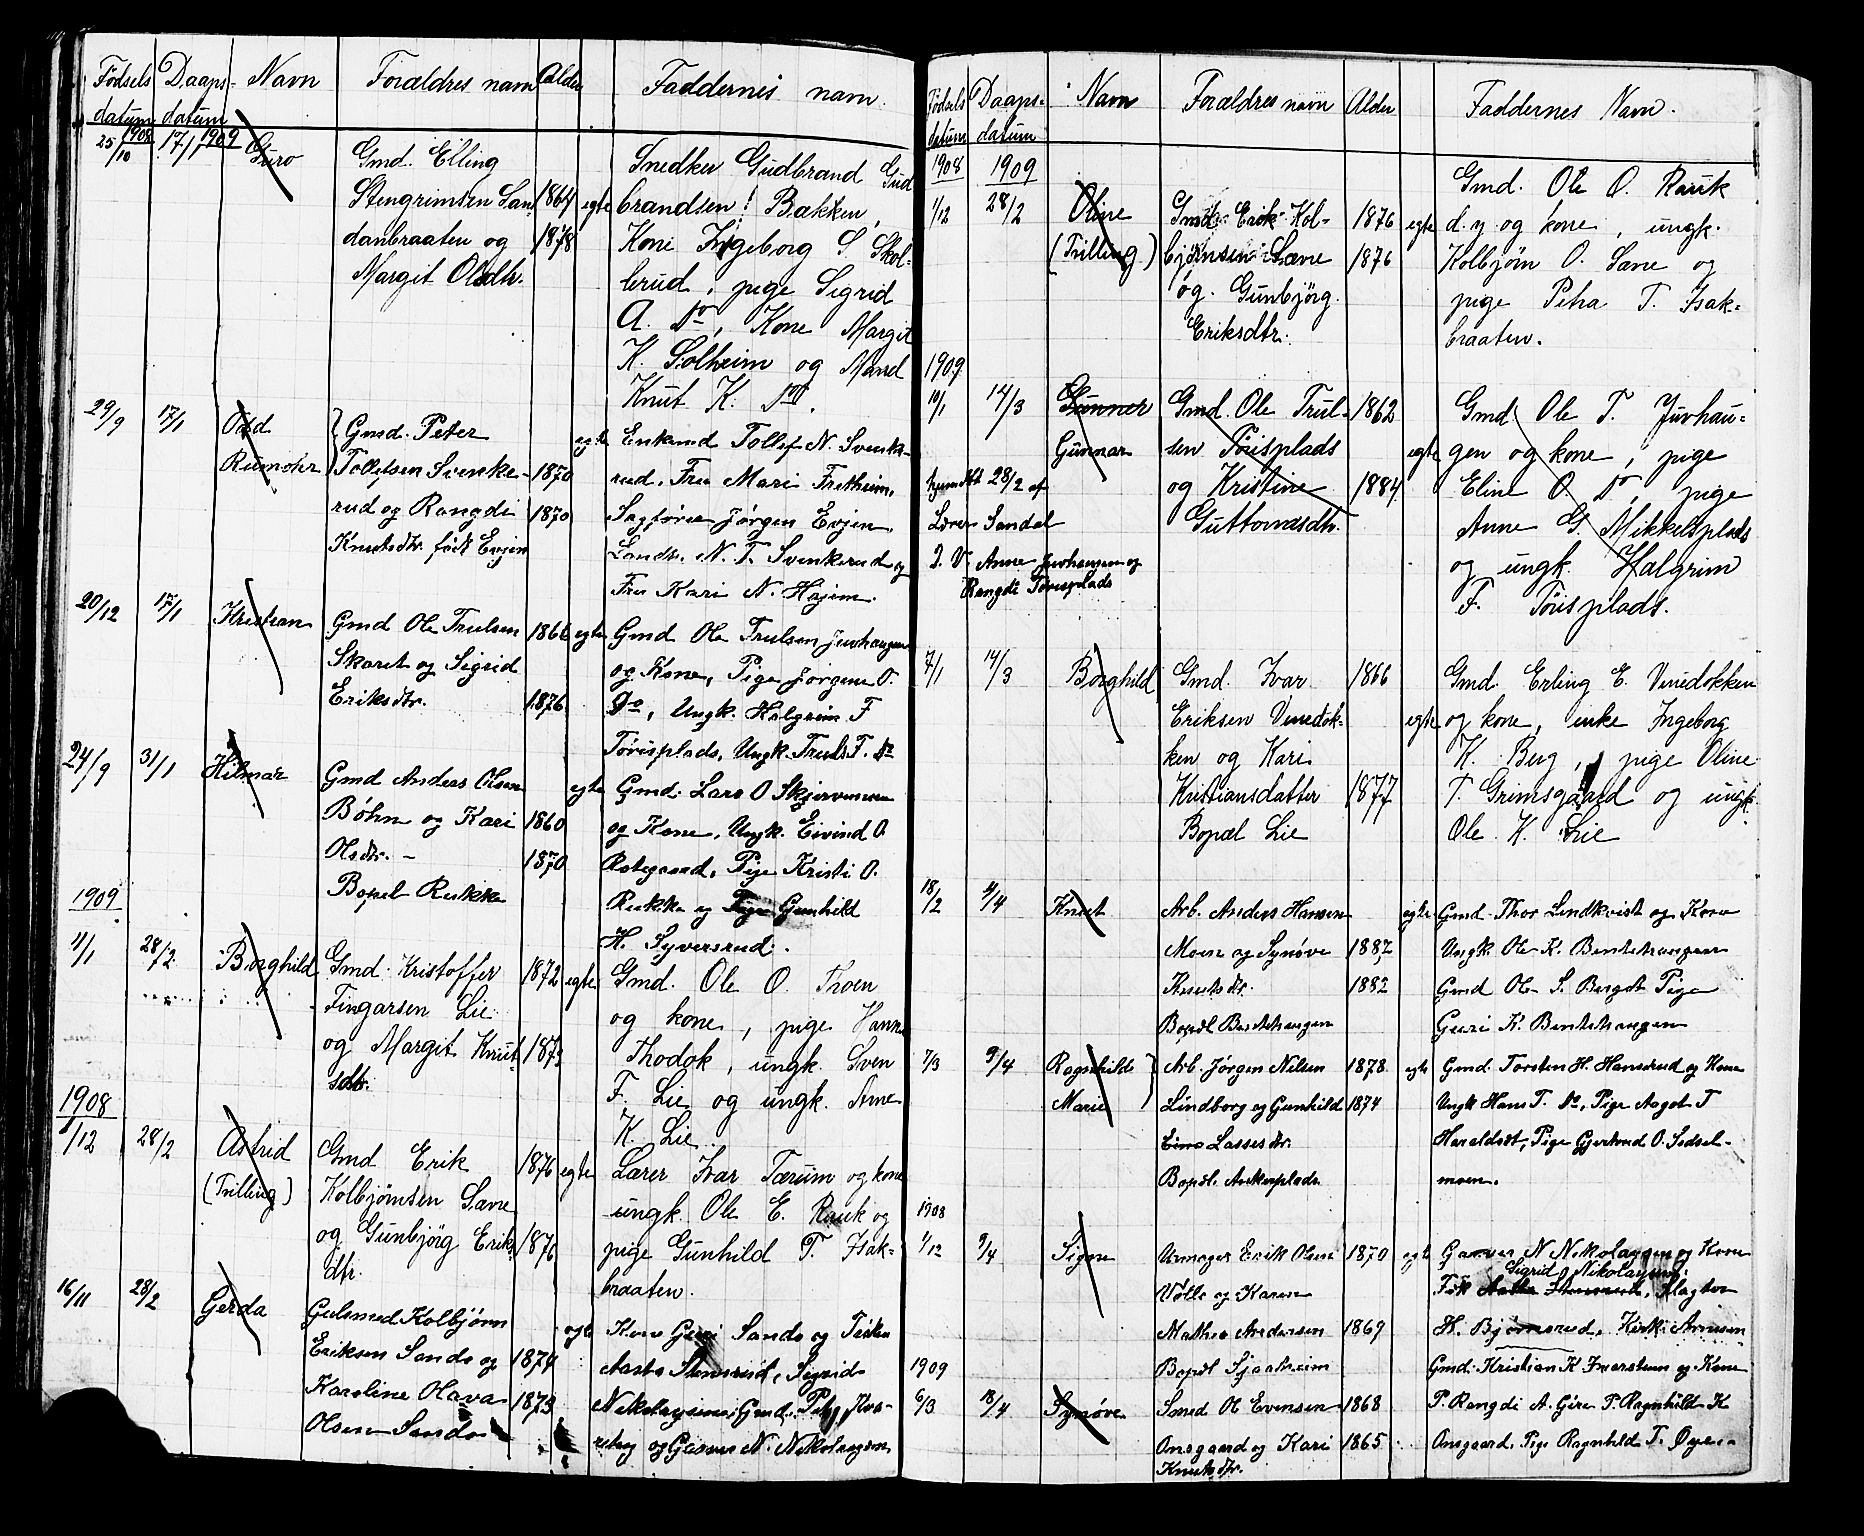 Fødsels Daaps- Navn Forældres navn Alder Faddernes navn.
datum datum
1908 1909
25/10 17/1 Guro Gmd. Elling Snedker Gudbrand Gud
Stengrimsen San 1864 egte brandsen Bakken,
danbraaten og 1878 Kone Ingeborg S. Skol-
Margit Olsdtr. brud, pige Sigrid
A. do, Kone Margit
K. Solheim og Mand
Knut K. do.
29/9 17/1 Odd Gmd. Peter egte Enkemd Tollef N. Svenke-
Rumohr Tollefsen Svenke- 1870 rud, Fru Mari Fretheim,
rud og Rangdi 1870 Sagfører Jørgen Evjen
Knutsdtr. født Evjen Landh. N. T. Svenkerud og
Fru Kari N. Hajem.
20/12 17/1 Kristian Gmd Ole Trulsen 1866 egte Gmd Ole Trulsen Juvhaugen
Skaret og Sigrid og Kone, Pige Jørgine O.
Eriksdtr. 1876 Do, Ungk. Halgrim F
Tørisplads, Ungk. Truls F. do
24/9 31/1 Hilmar Gmd Anders Olsen egte Gmd. Lars O Skjervemoen
Bøhn og Kari 1860 og Kone, Ungk. Eivind O.
Olsdtr. - 1870 Rotegaard, Pige Kristi O.
Bopel Rukke Rukke og Pige Gunhild
H. Syversrud.
1909
11/1 28/2 Borghild Gmd. Kristoffer 1872 egte Gmd. Ole O. Thoen
Fingarsen Lie og kone, pige Hanna
og Margit Knut- 1873 Thodok, ungk. Sven
sdtr. F. Lie og ungk. Arne
K. Lie.
1908
1/12 28/2 Astrid Gmd Erik 1876 egte Lærer Ivar Tærum og kone
(Trilling) Kolbjørnsen Sævre ungk. Ole E. Rauk og
og Gunbjørg Eriks 1876 pige Gunhild T. Isak-
dtr. braaten.
16/11 28/2 Gerda Gulsmed Kolbjørn egte Kone Guri Sando og Frøken
Eriksen Sando og 1874 Aasta Stensrud, Sigrid
Karoline Olava 1873 Nikolaysen, Gmd.
Olsen Sando og Garver N. Nikolaysen
Fødsels Daaps- Navn Forældres navn Alder Faddernes Navn.
datum datum
1908 1909 Gmd. Ole O. Rauk
1/12 28/2 Oline Gmd. Erik Kol- 1876 egte d.y. og kone, ungk.
(Trilling) bjørnsen Sævre 1876 Kolbjørn O. Sævre og
og Gunbjørg pige Petra T. Isak-
Eriksdtr. braaten.
1909
10/1 14/3 Gunner Gmd. Ole Trul- 1862 Gmd Ole T. Juvhau-
Gunnar sen Tørisplads egte gen og kone, pige
hjemdbt 28/2 af og Kristine 1884 Eline O. do, pige
Lærer Sandal Guttormsdtr. Anne G. Mikkelsplads
T. V. Anne Juvhaugen og og ungk. Halgrim
Rangdi Tørisplads F. Tørisplads.
7/1 14/3 Borghild Gmd. Ivar 1866 Gmd. Erling E. Vinedokken
Eriksen Vinedok- egte og kone, enke Ingeborg
ken og Kari K. Berg, pige Oline
Kristiansdatter 1877 T. Grimsgaard og ungk.
Bopæl Lie Ole K. Lie
18/2 4/4 Knut Arb. Anders Hansen egte Gmd. Thor Lindkvist og Kone
Moen og Synøve 1887 Ungk. Ole K. Bentehaugen
Knutsdtr. 1882 Gmd Ole S. Bergst Pige
Bopæl Bentehaugen Guri K. Bentehaugen
7/3 9/4 Ragnhilde Arb. Jørgen Nilsen 1878 egte Gmd. Torsten H. Hansrud og Kone
Marie Lindborg og Gunhild 1874 Ungk Hans T. do, Pige Aagot T
Lassesdtr. Haraldset, Pige Gjertrud O. Sedsel-
Bopæl. Ankerplads moen.
1908
1/12 9/4 Signe Urmager Erik Olsen 1870 egte Garver N Nikolaysen og Kone
Sigrid Nikolaysen.
Vølle og Karen Frk Aasta Stensrud, Slagter
Mathea Andersen 1869 H. Bjørnerud, Kirk. Arnesen
1909 Bopæl Sjaatheim Gmd. Kristian K. og Kone
6/3 18/4 Synøve Smed Ole Evensen 1868 P. Rangdi A. Gire P. Ragnhild K
Onsgaard og Kari 1865 Onsgaard, Pige Ragnhild T. Øye.
Knutsdtr.